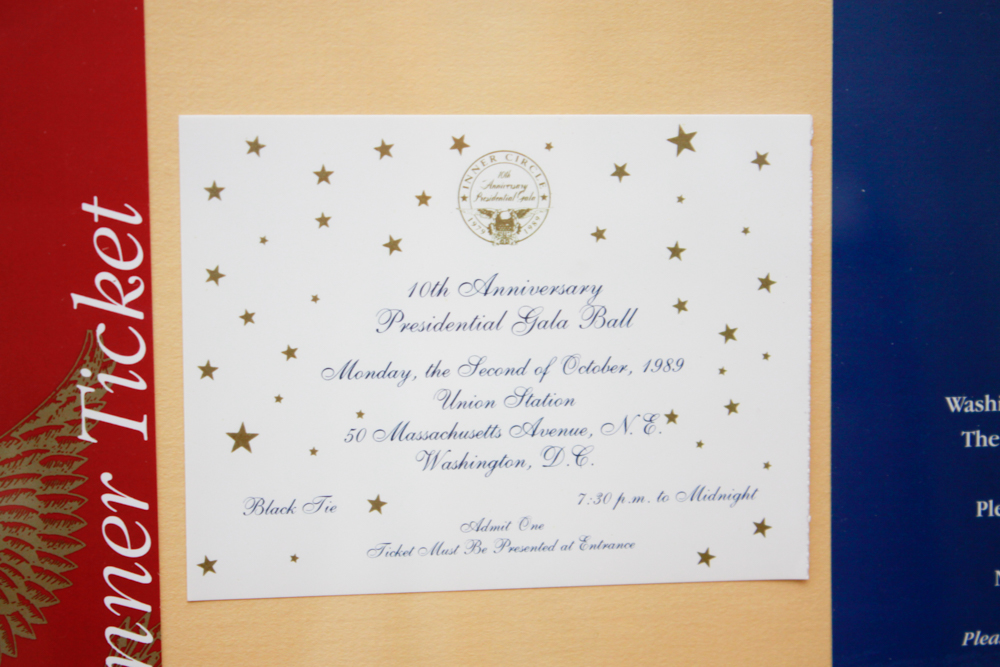 INNER CIRCLE
10th
Anniversary
Presidential Gala
1979 1989
10th Anniversary
Presidential Gala Ball
Monday, the Second of October, 1989
Union Station
50 Massachusetts Avenue, N.E.
Washington, D.C.
Black Tie
7:30 p.m. to Midnight
Admit One
Ticket Must Be Presented at Entrance
nner Ticket
Washi
The
Ple
N
Plea